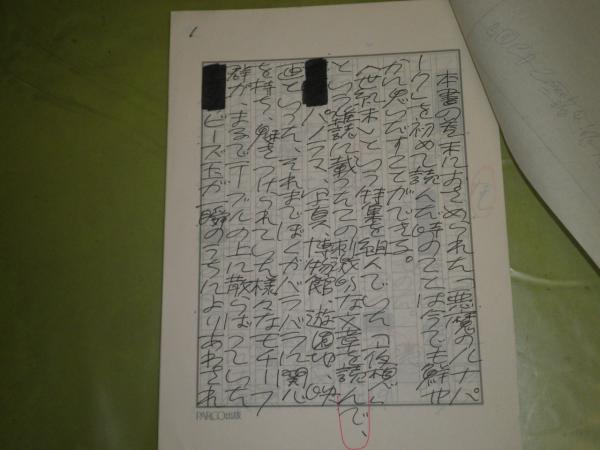 1
本書の巻末におさめられた「悪魔のルナパ
ーク」を初めて読んだ時のことは今でも鮮や
かに思いだすことができる。
〈世紀末〉という特集を組んでいた「夜想」
という雑誌に載ったこの刺激的な文章を読んで、
パノラマ、写真、博物館、遊園地、映
画といった、それまでぼくがバラバラに関心
を持ち、魅きつけられていた様々なモチーフ
群が、まるでテーブルの上に散らばっていた
ビーズ玉が一瞬のうちによりあわされ
PARCO出版